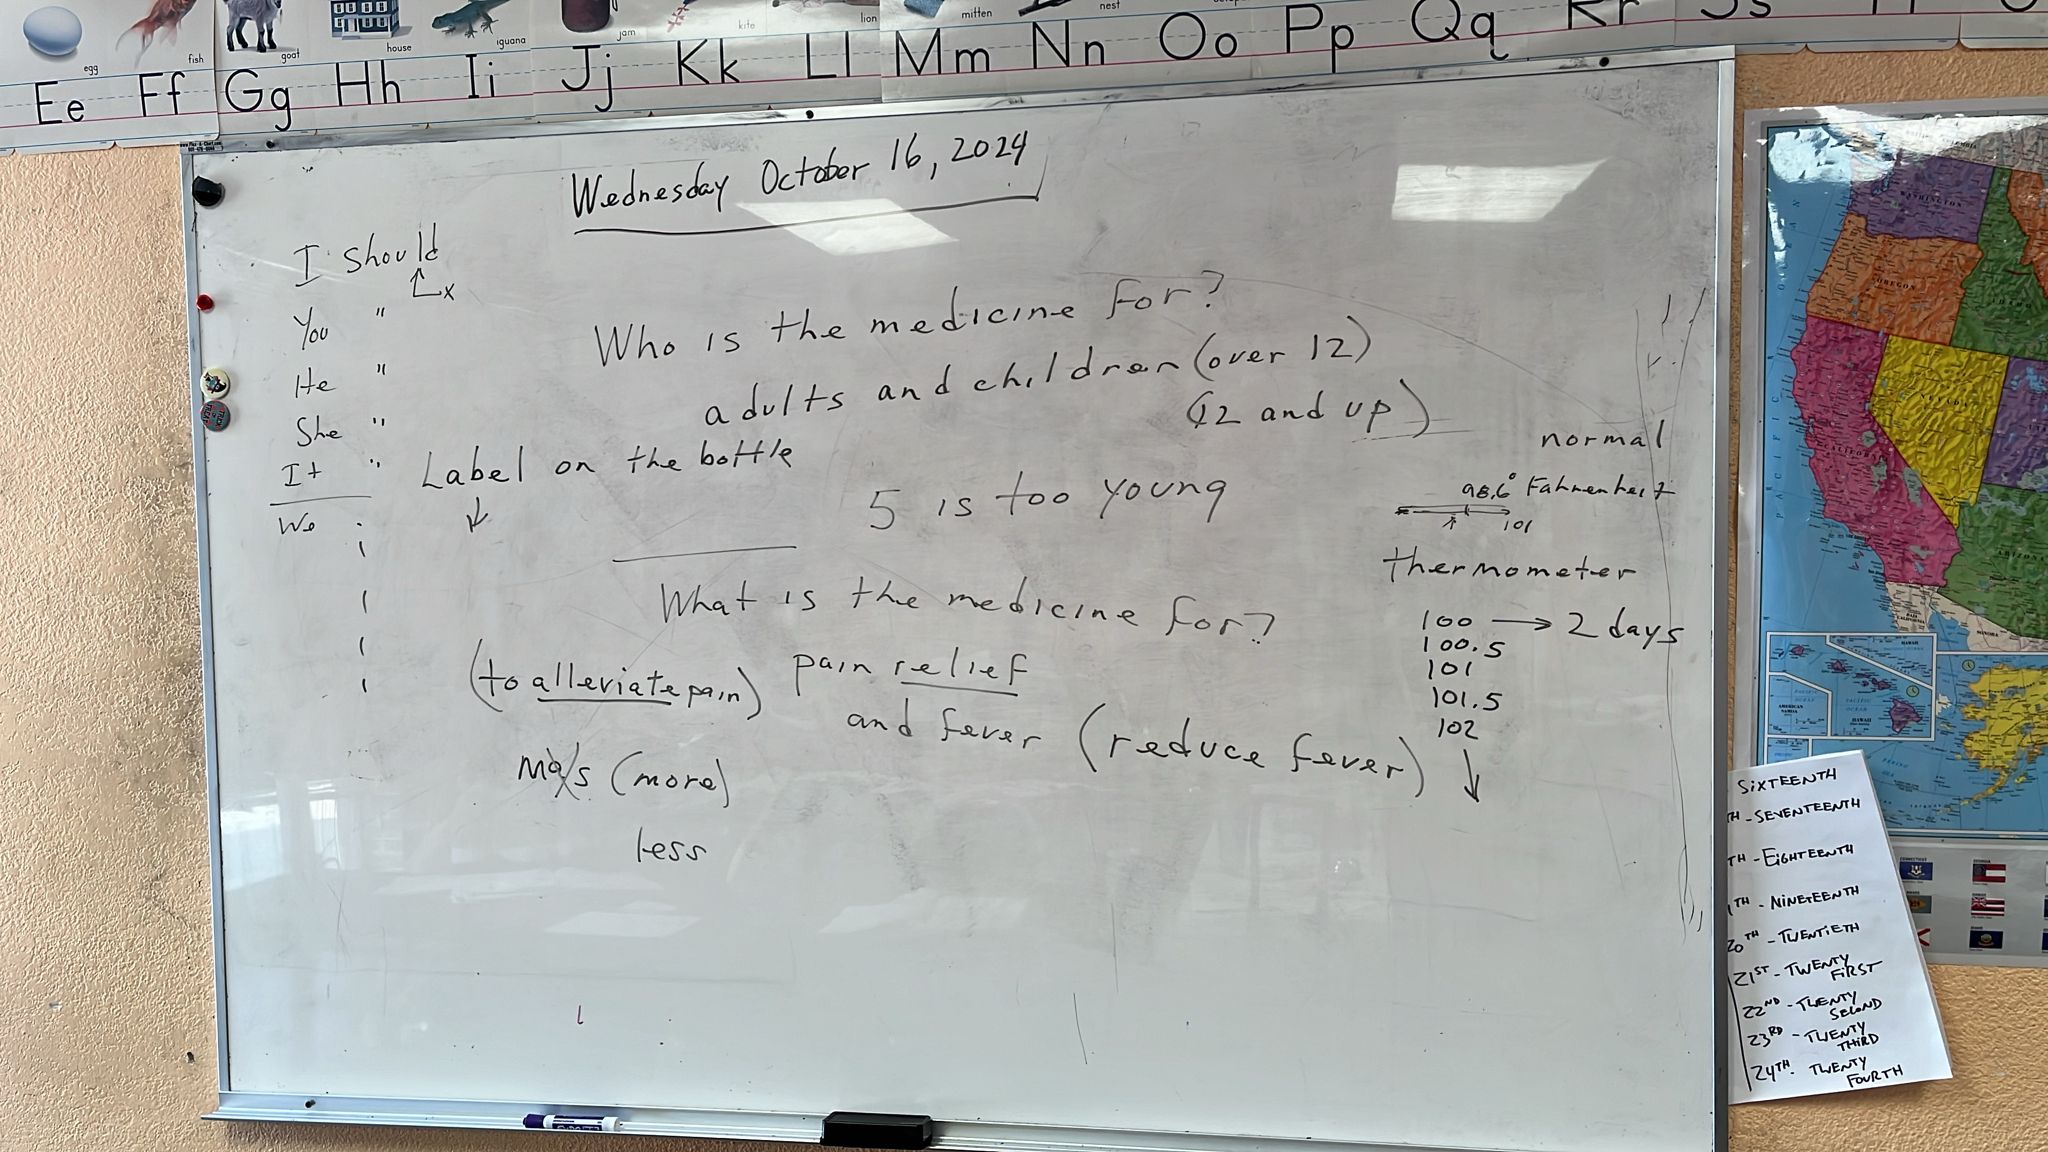 egg
fish
goat
house
iguana
jam
kite
lion
mitten
nest
Ee Ff Gg Hh Ii Jj Kk Ll Mm Nn Oo Pp Qq Rr Ss
Wednesday October 16, 2024
I should
x
You "
He "
She "
It "
We
Who is the medicine for?
adults and children (over 12)
(12 and up)
Label on the bottle
5 is too young
normal
98.6° Fahrenheit
101
thermometer
100 → 2 days
100.5
101
101.5
102
What is the medicine for?
(to alleviate pain) pain relief
and fever (reduce fever)
mas (more)
less
WASHINGTON
OREGON
IDAHO
NEVADA
CALIFORNIA
ARIZONA
PACIFIC
SONORA
HAWAII
AMERICAN
SAMOA
PACIFIC
OCEAN
HAWAII
CONNECTICUT
GEORGIA
SIXTEENTH
TH - SEVENTEENTH
TH - EIGHTEENTH
TH - NINETEENTH
20TH - TWENTIETH
21ST - TWENTY
FIRST
22ND - TWENTY
SECOND
23RD - TWENTY
THIRD
24TH - TWENTY
FOURTH